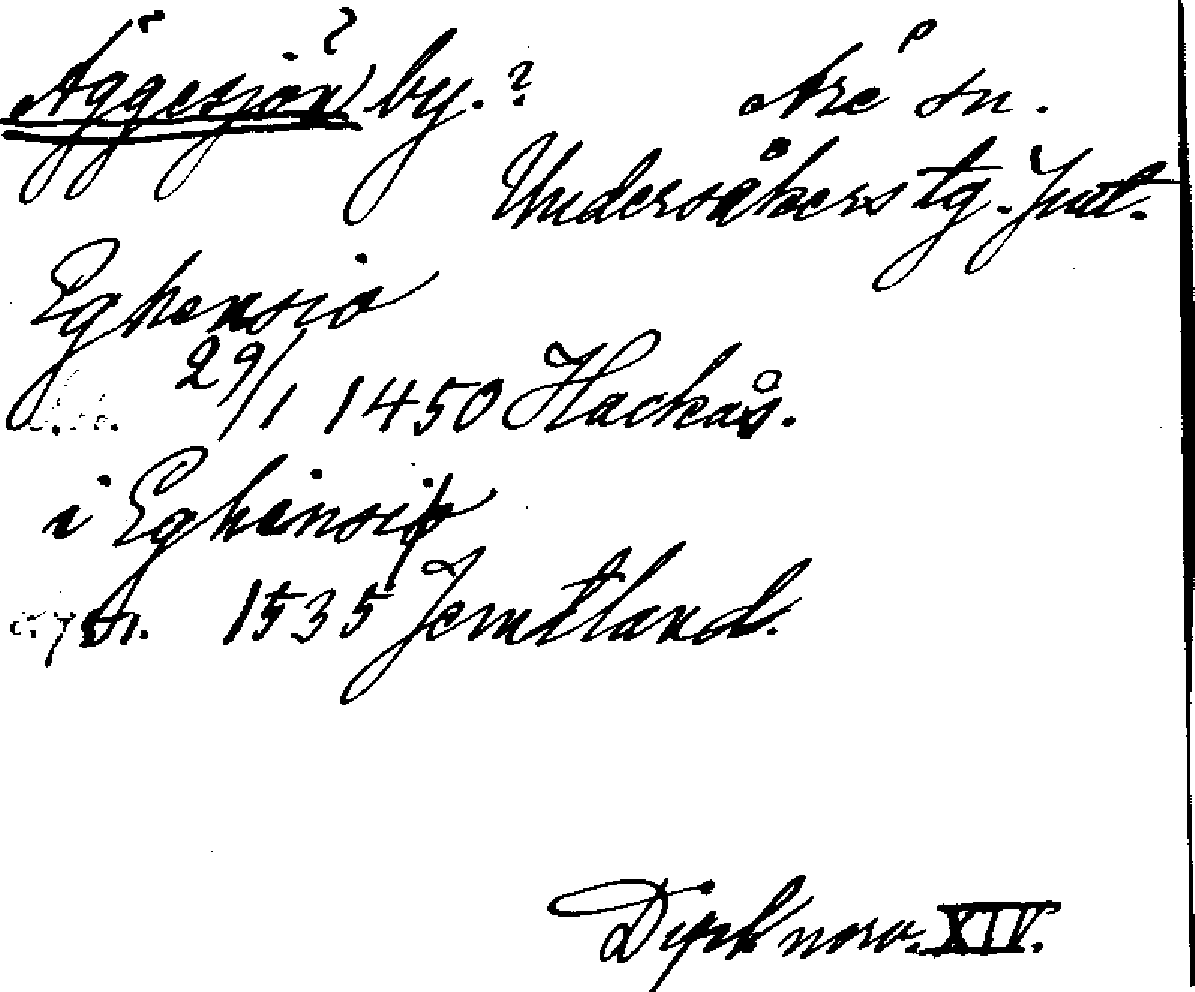 Äggesjön by.? Åre sn.
Undersåkers tg. Jmt.
Eghensio
29/1 1450 Hackås.
i Eghänsiø
1535 Jemtland.
Dipl norv. XIV.